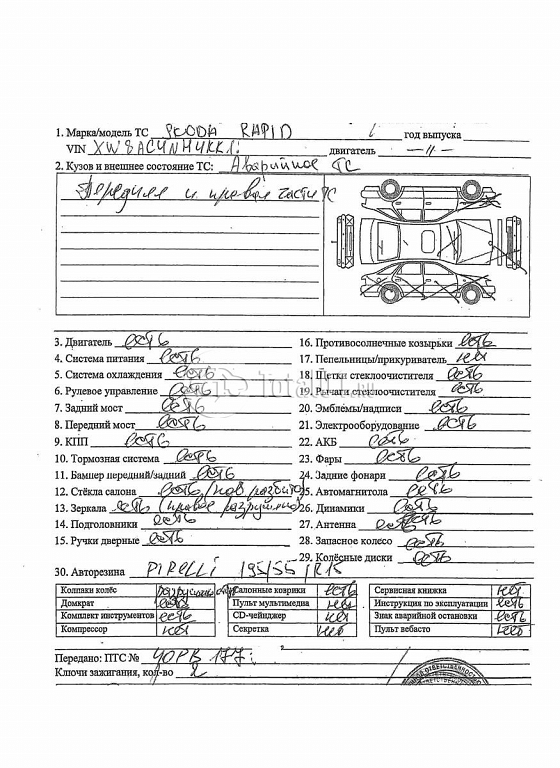 1. Марка/модель ТС SCODA RAPID год выпуска
VIN XW8AC4NH4KK1 двигатель —//—
2. Кузов и внешнее состояние ТС: Аварийное ТС
Передняя и правая части ТС
3. Двигатель есть 16. Противосолнечные козырьки есть
4. Система питания есть 17. Пепельницы/прикуриватель нет
5. Система охлаждения есть 18. Щетки стеклоочистителя есть
6. Рулевое управление есть 19. Рычаги стеклоочистителя есть
7. Задний мост есть 20. Эмблемы/надписи есть
8. Передний мост есть 21. Электрооборудование есть
9. КПП есть 22. АКБ есть
10. Тормозная система есть 23. Фары есть
11. Бампер передний/задний есть 24. Задние фонари есть
12. Стёкла салона есть/лоб разбито 25. Автомагнитола есть
13. Зеркала есть (правое разрушено) 26. Динамики есть
14. Подголовники есть 27. Антенна есть
15. Ручки дверные есть 28. Запасное колесо есть
29. Колёсные диски есть
30. Авторезина PIRELLI 195/55 R15
Колпаки колёс Салонные коврики есть Сервисная книжка нет
Домкрат есть Пульт мультимедиа нет Инструкция по эксплуатации есть
Комплект инструментов есть CD-чейнджер нет Знак аварийной остановки есть
Компрессор нет Секретка нет Пульт вебасто нет
Передано: ПТС № 177
Ключи зажигания, кол-во 2
ОТВЕТСТВЕННОС